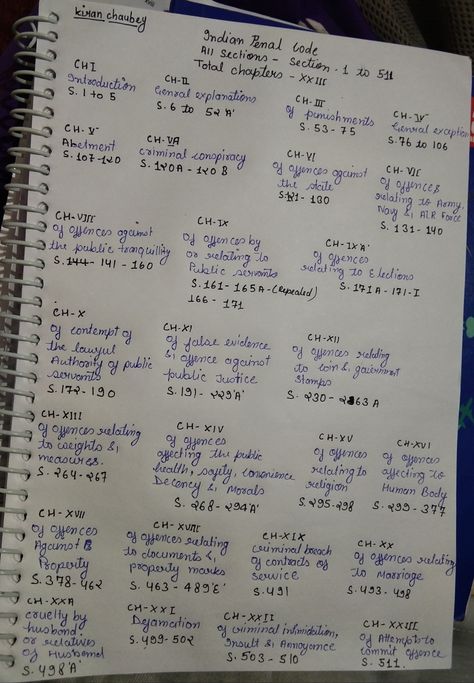 kiran chaubey
Indian Penal Code
All Sections - Section. 1 to 511
Total chapters - XXIII
CH I
Introduction
S. 1 to 5
CH-II
Genral explanations
S. 6 to 52 'A'
CH- III
of punishments
S. 53 - 75
CH- IV
Genral exception
S. 76 to 106
CH- V
Abetment
S. 107-120
CH- VA
Criminal conspiracy
S. 120A - 120 B
CH- VI
of offences against
the state
S. 121 - 130
CH- VII
of offences
relating to Army,
Navy & AIR Force
S. 131 - 140
CH- VIII
of offences against
the public tranquillity
S. 144- 141 - 160
CH- IX
of offences by
or relating to
Public servants
S. 161 - 165A - (repealed)
166 - 171
CH- IX 'A'
of offences
relating to Elections
S. 171A - 171-I
CH- X
of contempt of
the lawful
Authority of public
servants
S. 172 - 190
CH- XI
of false evidence
& offence against
public Justice
S. 191 - 229 'A'
CH- XII
of offences relating
to coin & government
stamps
S. 230 - 263 A
CH- XIII
of offences relating
to weights &
measures.
S. 264 - 267
CH- XIV
of offences
affecting the public
health, safety, convenience
Decency & Morals
S. 268 - 294 'A'
CH- XV
of offences
relating to
religion
S. 295 - 298
CH- XVI
of offences
affecting to
Human Body
S. 299 - 377
CH - XVII
of offences
Against
Property
S. 378 - 462
CH- XVIII
of offences relating
to documents &
property marks
S. 463 - 489 'E'
CH- XIX
Criminal breach
of contracts of
Service
S. 491
CH- XX
of offences relating
to Marriage
S. 493 - 498
CH- XXA
cruelty by
husband.
or relatives
of Husband
S. 498 'A'
CH- XXI
Defamation
S. 499 - 502
CH- XXII
of criminal intimidation,
Insult & Annoyance
S. 503 - 510
CH- XXIII
of Attempts to
commit offence
S. 511.